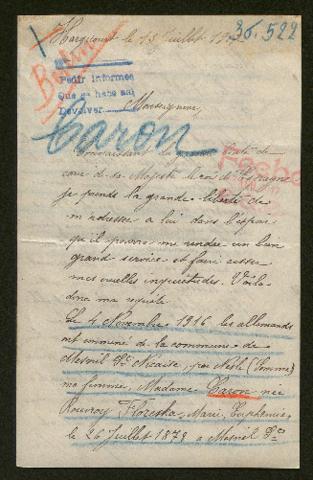 Hargicourt le 13 Juillet
36.522
Pedir informes
Que se hace saj
Devolver
Monseigneur,
Caron
Connaissant la grande bonté de
cœur de sa Majesté le roi d'Espagne
je prends la grande liberté de
m'adresser a lui dans l'espoir
qu'il pourra me rendre un bien
grand service et faire cesser
mes cruelles inquiétudes. Voilà
donc ma requête
Le 4 Novembre 1916 les allemands
ont emmené de la commune de
Mesnil St Nicaise, par Nesle (Somme)
ma femme, Madame Caron née
Rouvroy Floreska, Marie, Euphemie,
le 26 Juillet 1879 a Mesnil St